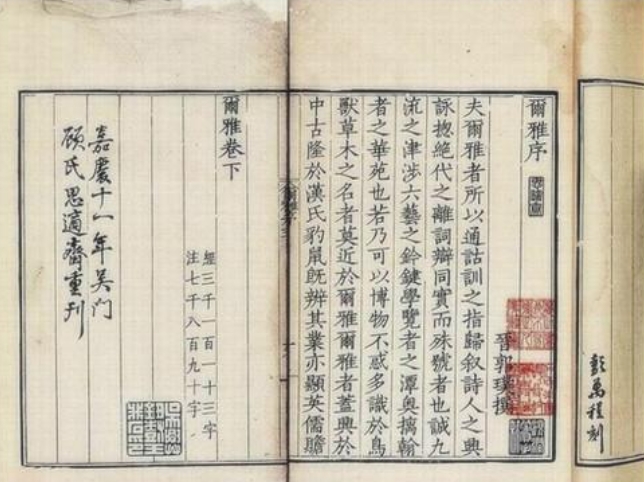 爾雅序
晉郭璞撰
夫爾雅者所以通詁訓之指歸叙詩人之興
詠揔絶代之離詞辯同實而殊號者也誠九
流之津涉六藝之鈐鍵學覽者之潭奧摛翰
者之華苑也若乃可以博物不惑多識於鳥
獸草木之名者莫近於爾雅爾雅者蓋興於
中古隆於漢氏豹鼠旣辨其業亦顯英儒贍
爾雅卷下
經三千一百一十三字
注七千八百九十字
嘉慶十一年吴门
顧氏思適齋重刋
彭萬程刻